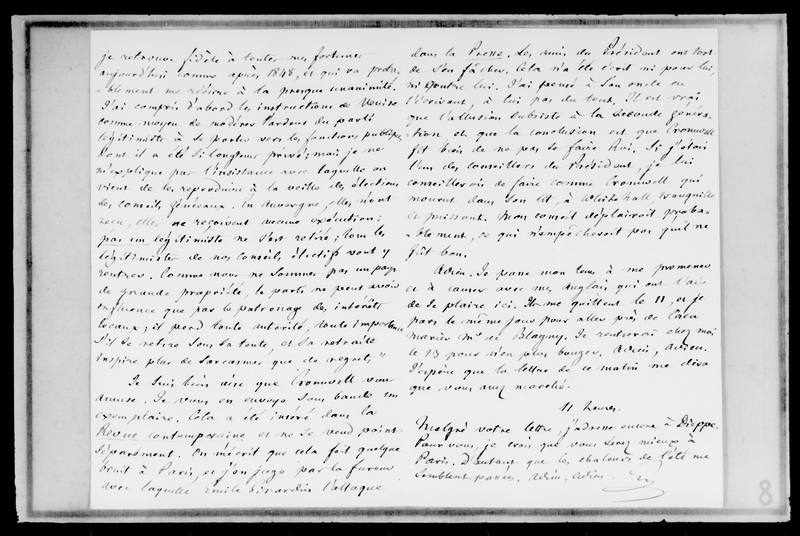 je retrouve fidèle à toutes mes fortunes
aujourd'hui comme après 1848, et qui va proba-
-blement me réélire à la presque unanimité.
J'ai compris d'abord les instructions de Venise
comme moyen de modérer l'ardeur du parti
légitimiste à se porter vers les fonctions publiques
dont il a été si longtemps privé ; mais je ne
m'explique pas l'insistance avec laquelle on
vient de les reproduire à la veille des élections
des conseils généraux. En Auvergne, elles n'ont
reçu, elles ne reçoivent aucune exécution :
pas un légitimiste ne s'est retiré ; tous les
légitimistes de nos conseils électifs vont y
rentrer. Comme nous ne sommes pas un pays
de grande propriété, le parti ne peut avoir
influence que par le patronage des intérêts
locaux ; il perd toute autorité, toute importance
s'il se retire sous sa tente, et sa retraite
inspire plus de sarcasmes que de regrets "
Je suis bien aise que Cromwell vous
amuse. Je vous en envoye sous bande un
exemplaire. Cela a été inséré dans la
Revue contemporaine et ne se vend point
séparément. On m'écrit que cela fait quelque
bruit à Paris, et j'en juge par la fureur
avec laquelle Emile Girardin l'attaque
dans la Presse. Les amis du Président ont tort
de s'en fâcher. Cela n'a été écrit ni pour lui,
ni contre lui. J'ai pensé à son oncle en
l'écrivant, à lui pas du tout. Il est vrai
que l'allusion subsiste à la seconde généra-
-tion et que la conclusion est que Cromwell
fit bien de ne pas se faire Roi. Si j'étois
l'un des conseillers du Président, je lui
conseillerois de faire comme Cromwell qui
mourut dans son lit, à Whitehall, tranquille
et puissant. Mon conseil déplairoit proba-
-blement, ce qui n'empêcheroit pas qu'il ne
fût bon.
Adieu. Je passe mon tems à me promener
et à causer avec mes Anglais qui ont l'air
de se plaire ici. Ils me quittent le 11, et je
pars le même jour pour aller près de Caen
marier Mlle de Blagny. Je rentrerai chez moi
le 13 pour n'en plus bouger. Adieu, Adieu.
J'espère que la lettre de ce matin me dira
que vous avez marché.
11 heures.
Malgré votre lettre, j'adresse encore à Dieppe.
Pour vous, je crois que vous serez mieux à
Paris. D'autant que les chaleurs de l'été me
semblent passées. Adieu, Adieu.
8